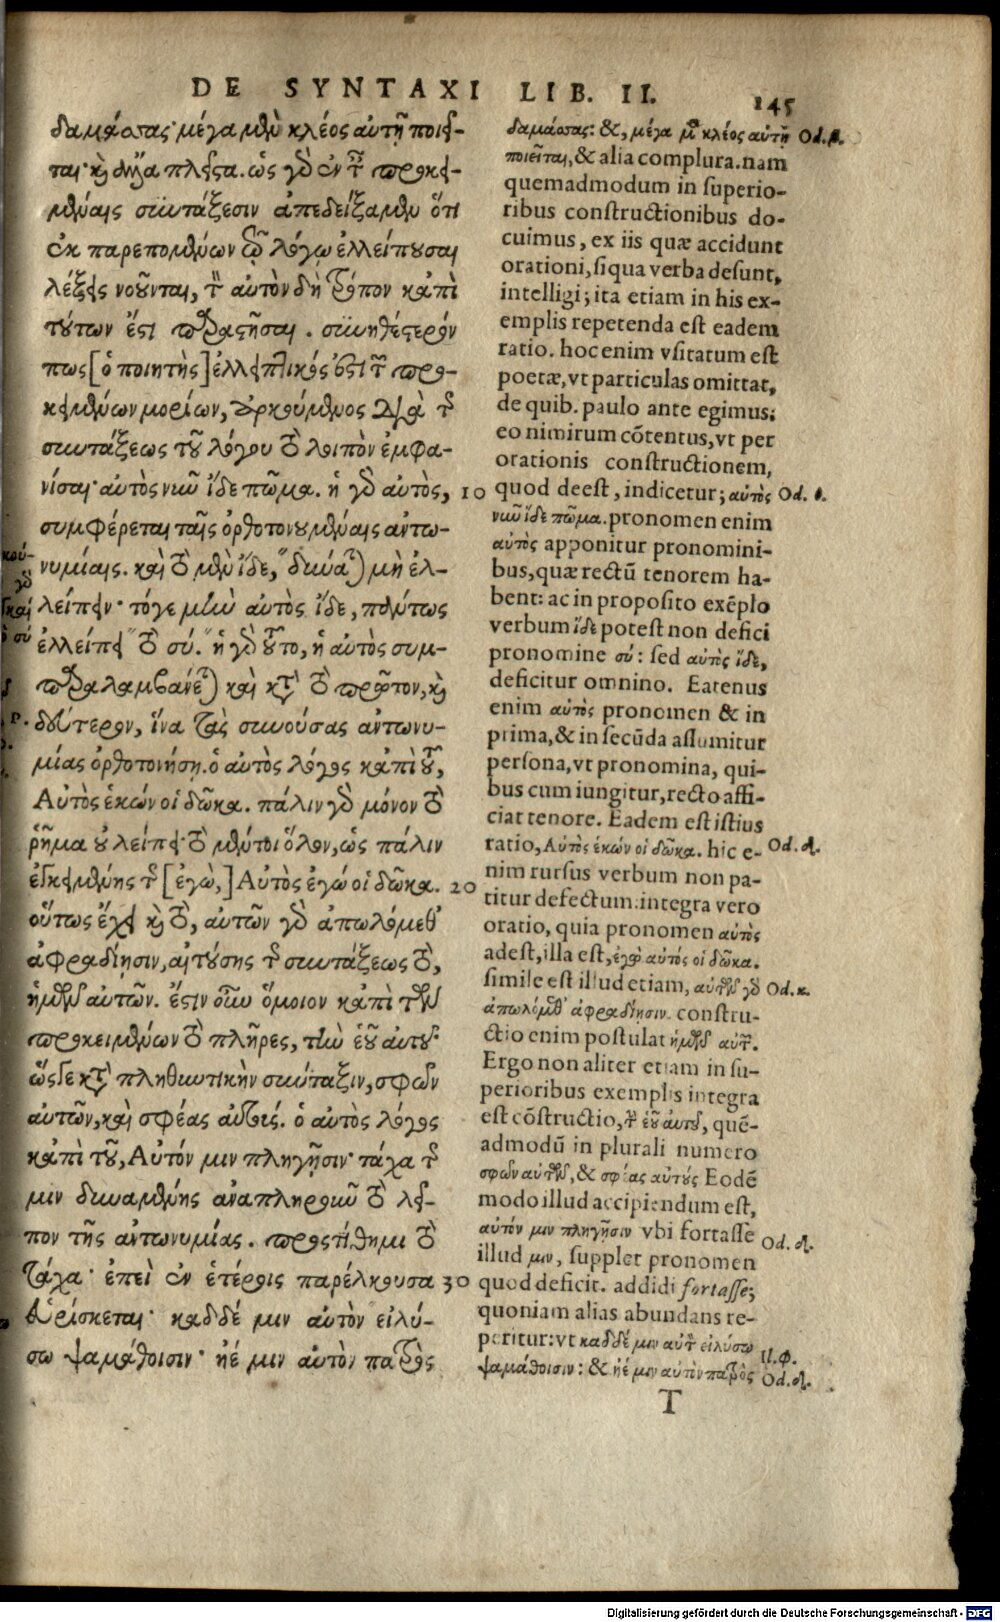 DE SYNTAXI LIB. II. 145
δαμάσσας· μέγα μὲν κλέος αὐτῇ ποιεῖ-
ται· καὶ ἄλλα πλεῖστα. ὡς γὰρ ἐν ταῖς προκει-
μέναις συντάξεσιν ἀπεδείξαμεν ὅτι
ἐκ παρεπομένων τῷ λόγῳ ἐλλείπουσαι
λέξεις νοοῦνται, τὸν αὐτὸν δὴ τρόπον κἀπὶ
τούτων ἔστι παραστῆσαι. συνηθέστερόν
πως [ὁ ποιητὴς] ἐλλειπτικός ἐστι τῶν προ-
κειμένων μορίων, ἀρκούμενος διὰ τῆς
συντάξεως τοῦ λόγου τὸ λοιπὸν ἐμφα-
νίσαι· αὐτὸς νῦν ἴδε πῶμα. ἡ γὰρ αὐτὸς, 10
συμφέρεται ταῖς ὀρθοτονουμέναις ἀντω-
νυμίαις. καὶ τὸ μὲν ἴδε, δύναται μὴ ἐλ-
λείπειν· τόγε μὴν αὐτὸς ἴδε, πάντως
ἐλλείπει τὸ σύ. ἡ γὰρ τοῦτο, ἡ αὐτὸς συμ-
παραλαμβάνεται καὶ κατὰ τὸ πρῶτον, καὶ
δεύτερον, ἵνα τὰς συνούσας ἀντωνυ-
μίας ὀρθοτονήσῃ. ὁ αὐτὸς λόγος κἀπὶ τοῦ,
Αὐτὸς ἑκών οἱ δῶκα. πάλιν γὰρ μόνον τὸ
ῥῆμα οὐ λείπει· τὸ μέντοι ὅλον, ὡς πάλιν
ἐγκειμένης τῆς [ἐγὼ,] Αὐτὸς ἐγώ οἱ δῶκα. 20
οὕτως ἔχει καὶ τὸ, αὐτῶν γὰρ ἀπωλόμεθ'
ἀφραδίῃσιν, αἰτούσης τῆς συντάξεως τὸ,
ἡμῶν αὐτῶν. ἔστιν οὖν ὅμοιον κἀπὶ τῶν
προκειμένων τὸ πλῆρες, τὴν ἑοῦ αὐτοῦ·
ὥστε κατὰ πληθυντικὴν σύνταξιν, σφῶν
αὐτῶν, καὶ σφέας αὐτούς. ὁ αὐτὸς λόγος
κἀπὶ τοῦ, Αὐτόν μιν πληγῇσιν· τάχα τῆς
μιν δυναμένης ἀναπληροῦν τὸ λεῖ-
πον τῆς ἀντωνυμίας. προςτίθημι τὸ
τάχα· ἐπεὶ ἐν ἑτέροις παρέλκουσα 30
εὑρίσκεται· καδδέ μιν αὐτὸν εἰλύ-
σω ψαμάθοισιν· ἠέ μιν αὐτὸν πατρὸς
δαμάσσας: &, μέγα μὲν κλέος αὐτῇ Od. β.
ποιεῖται, & alia complura. nam
quemadmodum in superio-
ribus constructionibus do-
cuimus, ex iis quæ accidunt
orationi, si qua verba desunt,
intelligi; ita etiam in his ex-
emplis repetenda est eadem
ratio. hoc enim vsitatum est
poetæ, vt particulas omittat,
de quib. paulo ante egimus;
eo nimirum cõtentus, vt per
orationis constructionem,
quod deest, indicetur; αὐτὸς Od. θ.
νῦν ἴδε πῶμα. pronomen enim
αὐτὸς apponitur pronomini-
bus, quæ rectũ tenorem ha-
bent: ac in proposito exẽplo
verbum ἴδε potest non defici
pronomine σύ: sed αὐτὸς ἴδε,
deficitur omnino. Eatenus
enim αὐτὸς pronomen & in
prima, & in secũda assumitur
persona, vt pronomina, qui-
bus cum iungitur, recto affi-
ciat tenore. Eadem est istius
ratio, Αὐτὸς ἑκών οἱ δῶκα. hic e- Od. δ.
nim rursus verbum non pa-
titur defectum: integra vero
oratio, quia pronomen αὐτὸς
adest, illa est, ἐγὼ αὐτός οἱ δῶκα.
simile est illud etiam, αὐτῶν γὰρ Od. κ.
ἀπωλόμεθ' ἀφραδίῃσιν. constru-
ctio enim postulat ἡμῶν αὐτῶν.
Ergo non aliter etiam in su-
perioribus exemplis integra
est cõstructio, τὴν ἑοῦ αὐτοῦ, quẽ-
admodũ in plurali numero
σφῶν αὐτῶν, & σφέας αὐτούς Eodẽ
modo illud accipiendum est,
αὐτόν μιν πληγῇσιν vbi fortasse Od. δ.
illud μιν, supplet pronomen
quod deficit. addidi fortasse;
quoniam alias abundans re-
peritur: vt καδδέ μιν αὐτὸν εἰλύσω Il. φ.
ψαμάθοισιν: & ἠέ μιν αὐτὸν πατρὸς Od. δ.
T
Digitalisierung gefördert durch die Deutsche Forschungsgemeinschaft - DFG